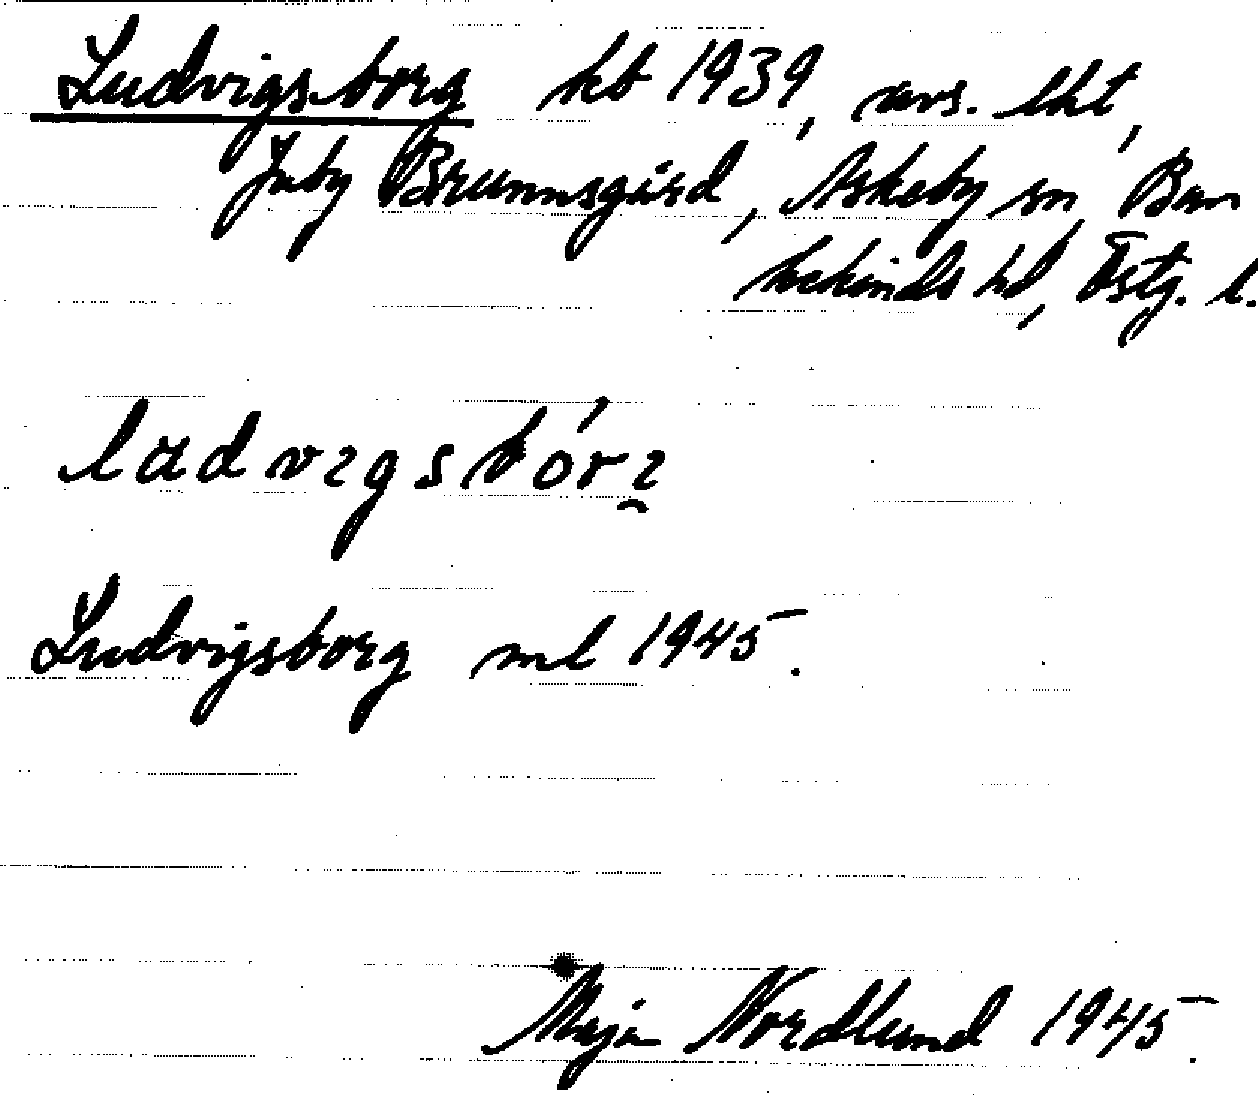 Ludvigsborg kb 1939, avs. lht,
Juby Brunnsgård, Askeby sn, Ban
kekinds hd, Östg. l.
ladvɩgsbórɩ̯
Ludvigsborg ml 1945.
Maja Nordlund 1945.